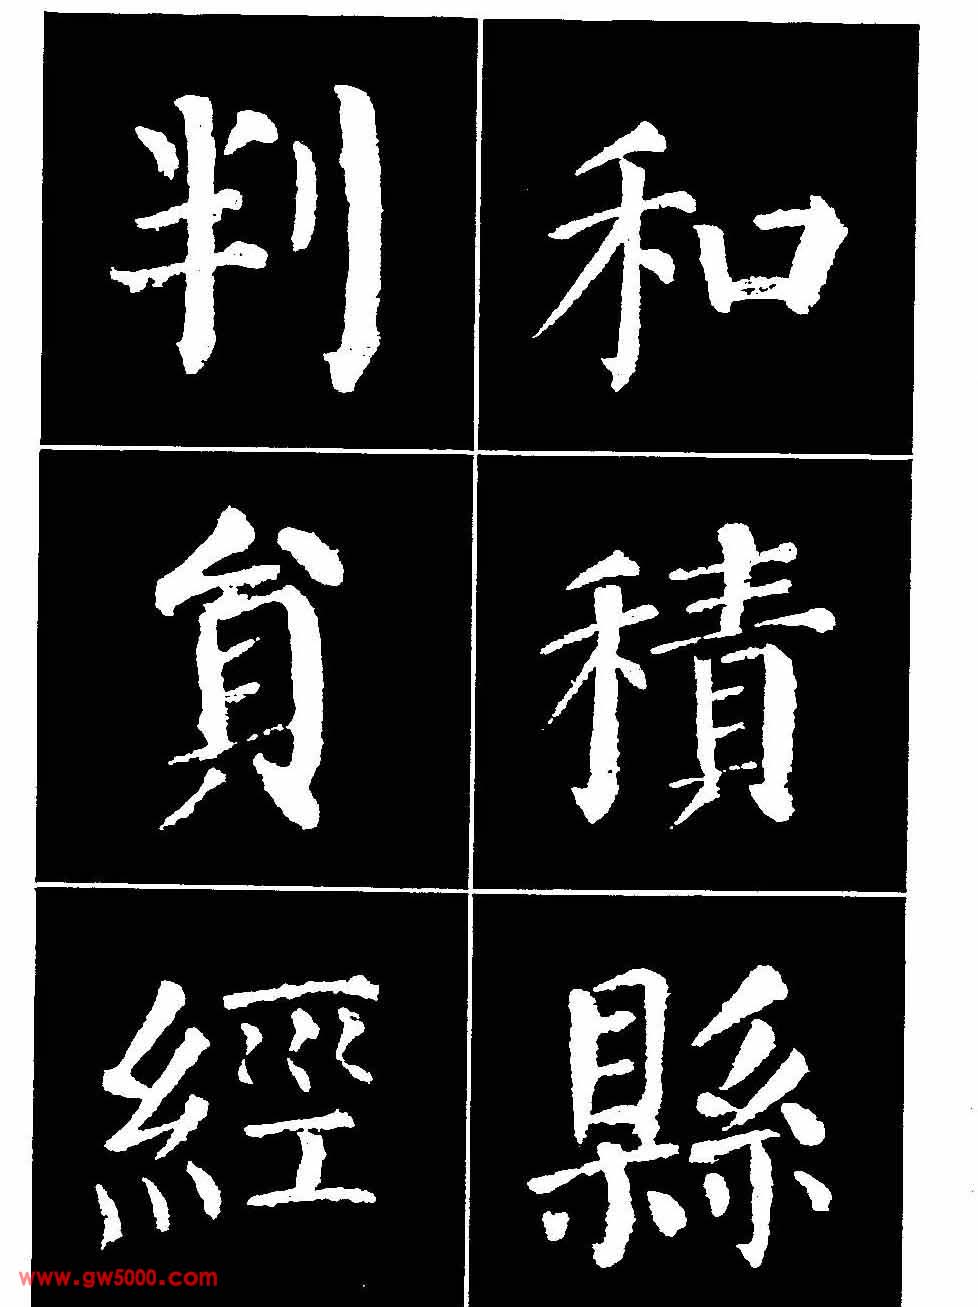 和積縣
判貟經
www.gw5000.com